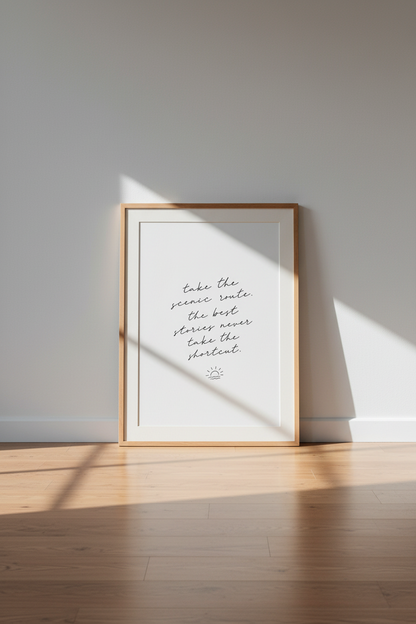 take the
scenic route.
the best
stories never
take the
shortcut.